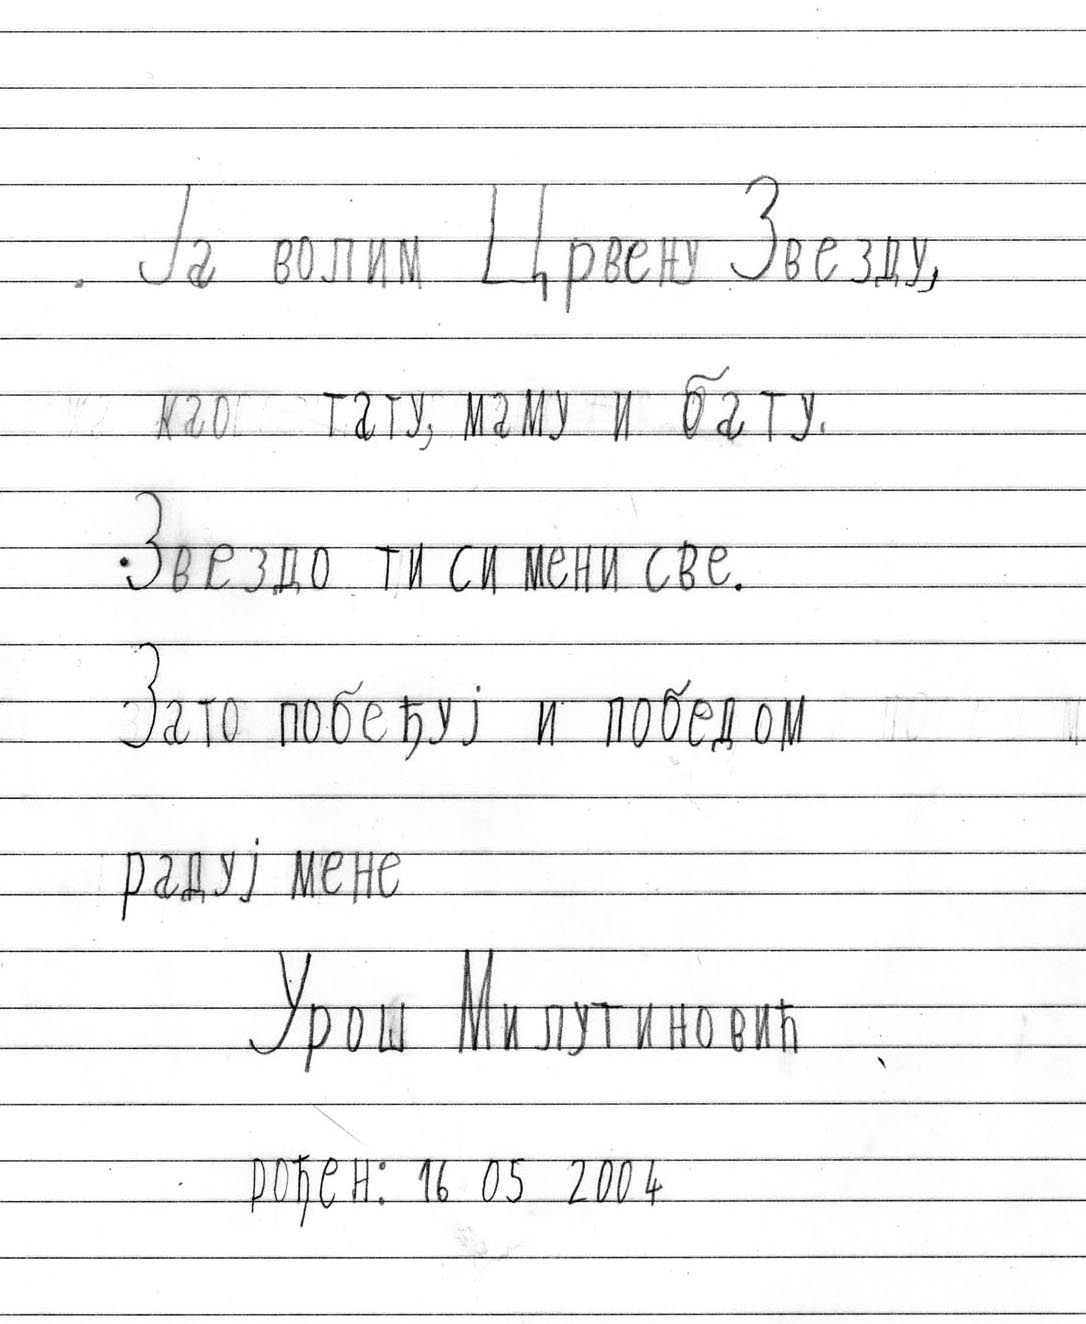 Ја волим Црвену Звезду,
као тату, маму и бату.
Звездо ти си мени све.
Зато побеђуј и победом
радуј мене
Урош Милутиновић
рођен: 16 05 2004